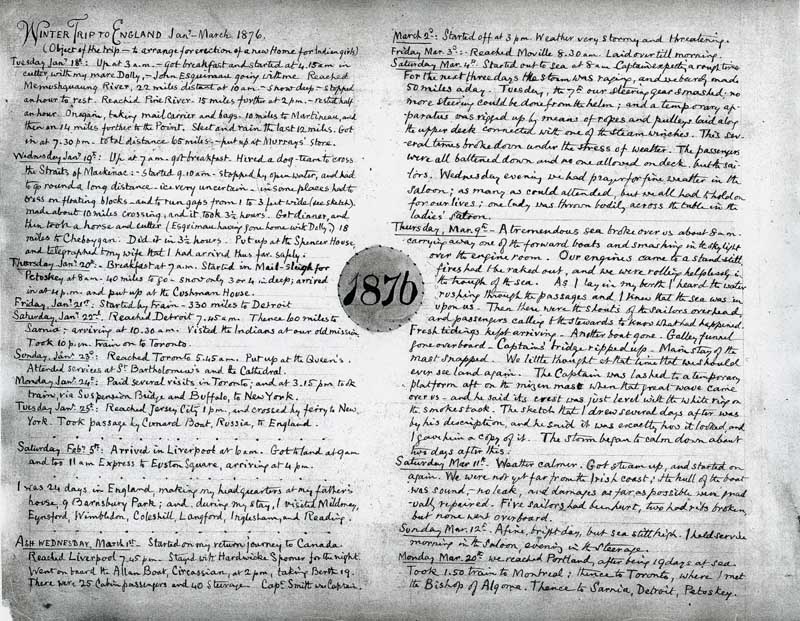 WINTER TRIP TO ENGLAND Jany – March 1876.
(Object of the trip – to arrange for erection of a new Home for Indian girls)
Tuesday Jany 18: Up at 3 am. – got breakfast and started at 4.15 am in
cutter, with my mare Dolly, – John Esquimau going with me. Reached
River, 22 miles distant at 10 am – snow deep – stopped
an hour to rest. Reached Pine River 15 miles further at 2 pm. – rested half
an hour. On again, taking mail carrier and bags. 10 miles to Martineau, and
then on 14 miles further to the Point. Sleet and rain the last 12 miles. Got
in at 7.30 pm. total distance 65 miles – put up at Murray's store.
Wednesday Jany 19: Up at 7 am. got breakfast. Hired a dog-team to cross
the Straits of Mackinac: – started 9.10 am – stopped by open water, and had
to go round a long distance. ice very uncertain – in some places had to
cross on floating blocks – and to run gaps from 1 to 3 feet wide (see sketch).
made about 10 miles crossing, and it took 3½ hours. Got dinner, and
then took a horse and cutter (Esquimau having gone home with Dolly,) 18
miles to Cheboygan. Did it in 3½ hours. Put up at the Spencer House,
and telegraphed to my wife that I had arrived thus far safely.
Thursday Jany 20: Breakfast at 7 am. Started in Mail-sleigh for
Petoskey at 8 am. 40 miles to go – snow only 3 or 4 in deep; arrived
in at 4 pm. and put up at the Cushman House.
Friday Jany 21st: Started by train – 330 miles to Detroit
Saturday Jany 22d: Reached Detroit 7.45 am. Thence 60 miles to
Sarnia; arriving at 10.30 am. Visited the Indians at our old mission.
Took 10 pm. train on to Toronto.
Sunday Jany 23d: Reached Toronto 5.45 am. Put up at the Queen's.
Attended services at St Bartholomew's and the Cathedral.
Monday Jany 24: Paid several visits in Toronto; and at 3.15 pm took
train, via Suspension Bridge and Buffalo, to New York.
Tuesday Jany 25: Reached Jersey City 1 pm. and crossed by ferry to New
York. Took passage by Cunard Boat, Russia, to England.
Saturday Feby 5th: Arrived in Liverpool at 6 am. Got to land at 9 am
and too 11 am Express to Euston Square, arriving at 4 pm.
I was 24 days in England, making my headquarters at my father's
house, 9 Barnsbury Park; and, during my stay, I visited Mildmay,
Eynsford, Wimbledon, Coleshill, Langford, Inglesham, and Reading.
ASH WEDNESDAY, March 1st Started on my return journey to Canada.
Reached Liverpool 7.45 pm. Stayed with Hardwicke Spooner for the night.
Went on board the Allan Boat, Circassian, at 2 pm, taking Berth 19.
There were 25 Cabin passengers and 40 steerage. Capt. Smith was Captain.
1876
March 2d: Started off at 3 pm. Weather very stormy and threatening.
Friday Mar. 3d: – Reached Moville 8.30 am. Laid over till morning.
Saturday Mar. 4th Started out to sea at 8 am Captain expects a rough time
For the next three days the storm was raging, and we barely made
50 miles a day. Tuesday, the 7th our steering gear smashed – no
more steering could be done from the helm; and a temporary ap-
paratus was rigged up by means of ropes and pulleys laid along
the upper deck connected with one of the steam winches. This sev-
eral times broke down under the stress of weather. The passengers
were all battened down and no one allowed on deck but the sai-
lors. Wednesday evening we had prayer for fine weather in the
Saloon; as many as could attended, but we all had to hold on
for our lives; one lady was thrown bodily across the table in the
ladies' saloon.
Thursday, Mar. 9th – A tremendous sea broke over us about 8 am.
carrying away one of the forward boats and smashing in the skylight
over the engine room. Our engines came to a stand still
fires had the raked out, and we were rolling helplessly in
the trough of the sea. As I lay in my berth I heard the water
rushing through the passages and I knew that the sea was in
upon us. Then there were the shouts of the sailors overhead,
and passengers calling to the stewards to know what had happened.
Fresh tidings kept arriving – Another boat gone. Galley funnel
gone overboard – Captain's bridge ripped up – Main stay of the
mast snapped. We little thought at that time that we should
ever see land again. The Captain was lashed to a temporary
platform aft on the mizen mast when that great wave came
over us – and he said its crest was just level with the white ring on
the smokestack. The sketch that I drew several days after was
by his description, and he said it was exactly how it looked, and
I gave him a copy of it. The storm began to calm down about
two days after this.
Saturday Mar 11th. Weather calmer. Got steam up, and started on
again. We were not yet far from the Irish coast; the hull of the boat
was sound – no leak, and damages as far as possible were grad-
ually repaired. Five sailors had been hurt, two had ribs broken,
but none were overboard.
Sunday Mar. 12th. A fine, bright day, but sea still high. I held service
morning in the Saloon, evening in the Steerage.
Monday Mar. 20th. we reached Portland, after being 19 days at sea.
Took 1.50 train to Montreal; thence to Toronto, where I met
the Bishop of Algoma. Thence to Sarnia, Detroit, Petoskey.